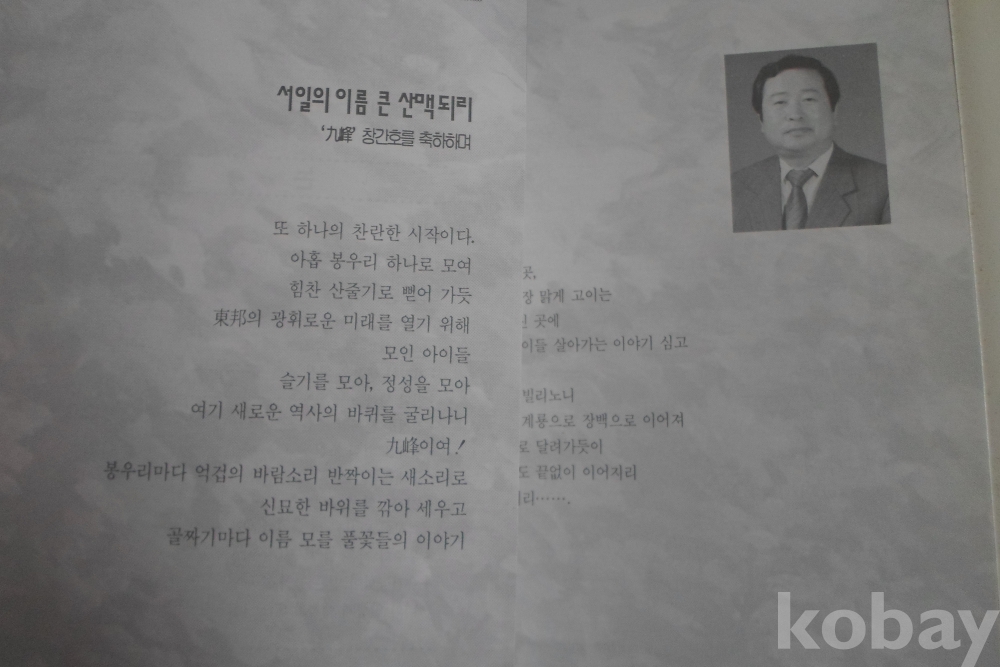 서일의 이름 큰 산맥되리
'九峰' 창간호를 축하하며
또 하나의 찬란한 시작이다.
아홉 봉우리 하나로 모여
힘찬 산줄기로 뻗어 가듯
東邦의 광휘로운 미래를 열기 위해
모인 아이들
슬기를 모아, 정성을 모아
여기 새로운 역사의 바퀴를 굴리나니
九峰이여!
봉우리마다 억겁의 바람소리 반짝이는 새소리로
신묘한 바위를 깎아 세우고
골짜기마다 이름 모를 풀꽃들의 이야기
곳,
장 맑게 고이는
곳에
이들 살아가는 이야기 심고
빌리노니
계룡으로 장백으로 이어져
로 달려가듯이
도 끝없이 이어지리
리…….
kobay